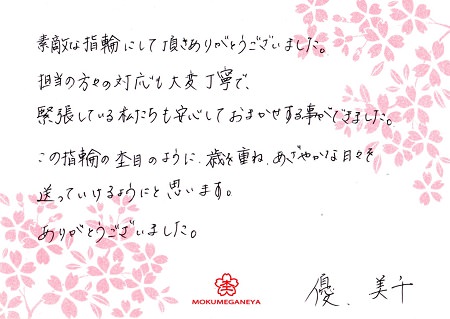 素敵な指輪にして頂きありがとうございました。
担当の方々の対応も大変丁寧で、
緊張している私たちも安心しておまかせする事ができました。
この指輪の杢目のように、歳を重ね、あざやかな日々を
送っていけるようにと思います。
ありがとうございました。
杢
MOKUMEGANEYA
優、美千